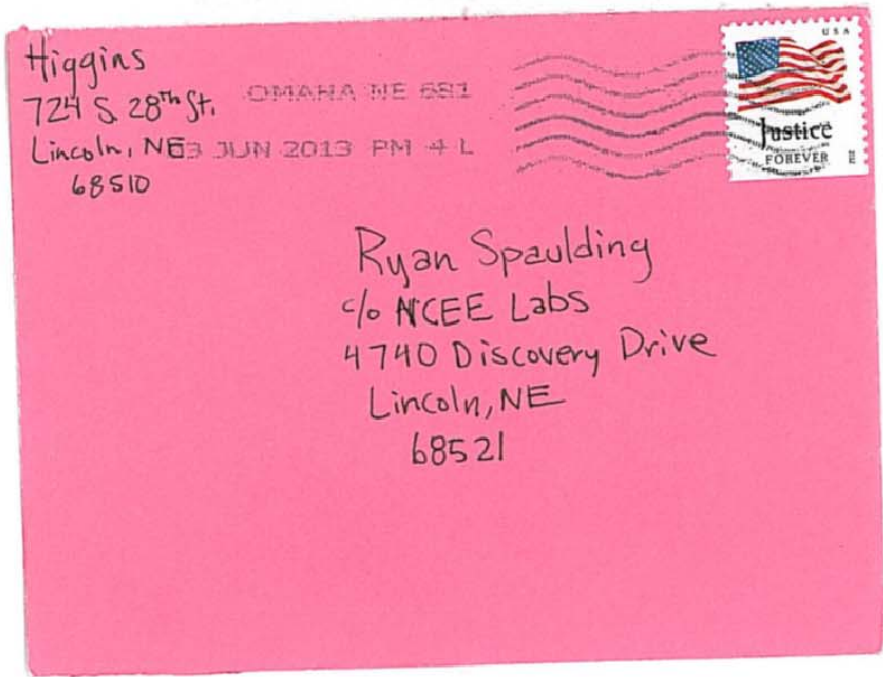 Higgins
724 S 28th St.
Lincoln, NE
68510
OMAHA NE 681
03 JUN 2013 PM 4 L
USA
Justice
FOREVER
Ryan Spaulding
c/o NCEE Labs
4740 Discovery Drive
Lincoln, NE
68521